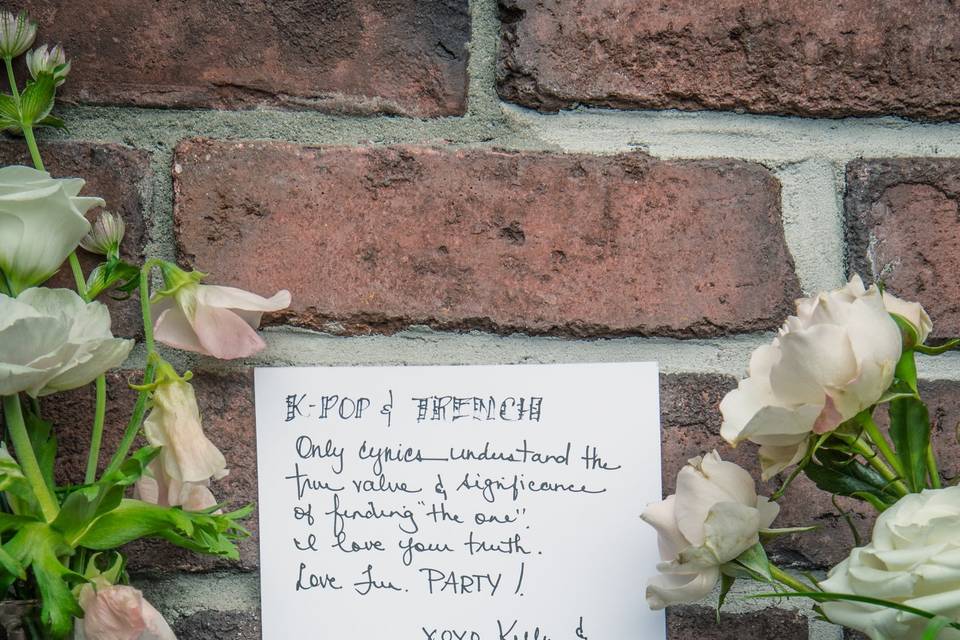 K-POP & TRENCH
Only cynics understand the
true value & significance
of finding "the one".
I love your truth.
Love Fun. PARTY!
XOXO Kelly &